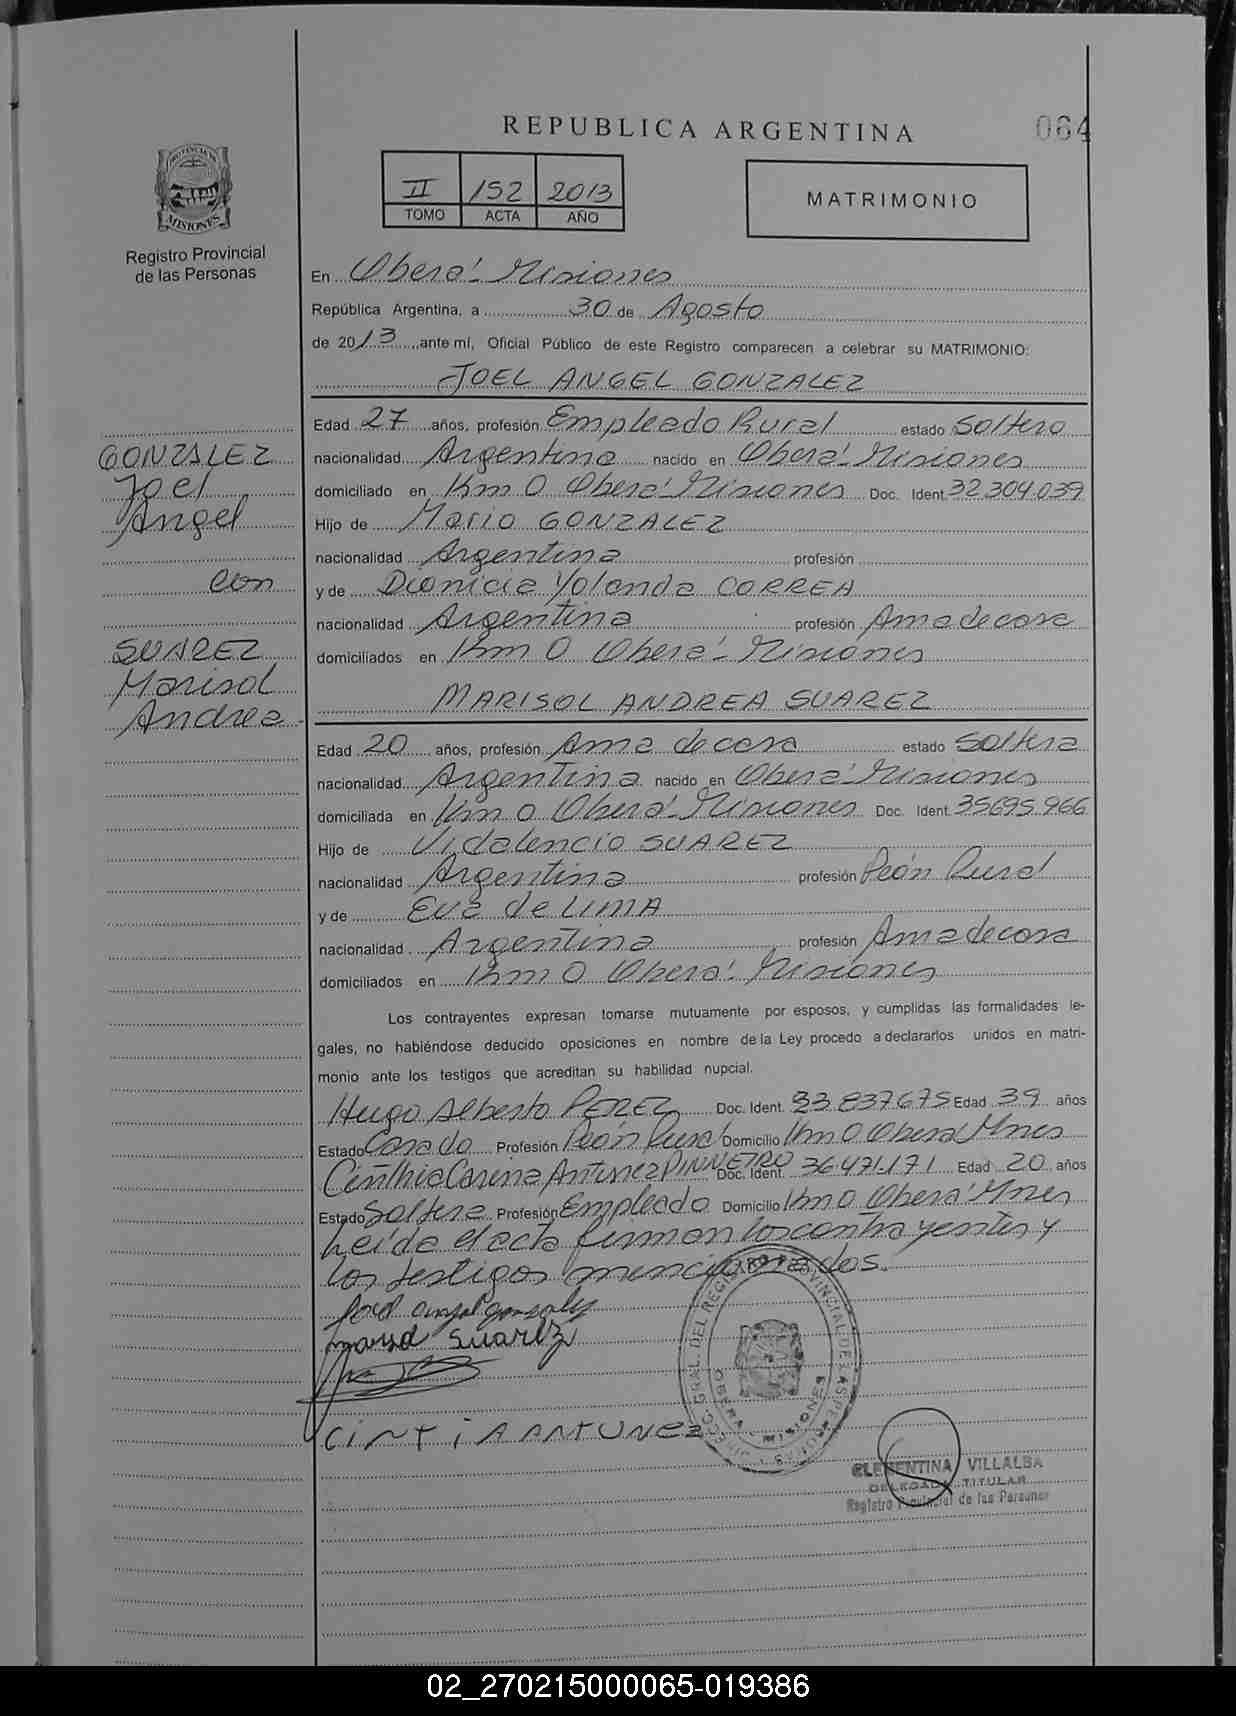 REPUBLICA ARGENTINA
064
PROVINCIA DE
MISIONES
Registro Provincial
de las Personas
II 152 2013
TOMO ACTA AÑO
MATRIMONIO
En Oberá - Misiones
República Argentina, a 30 de Agosto
de 2013, ante mí, Oficial Público de este Registro comparecen a celebrar su MATRIMONIO:
JOEL ANGEL GONZALEZ
GONZALEZ
Joel
Angel
con
SUAREZ
Marisol
Andrea
Edad 27 años, profesión Empleado Rural estado Soltero
nacionalidad Argentina nacido en Oberá - Misiones
domiciliado en Km 0 Oberá - Misiones Doc. Ident. 32304039
Hijo de Mario GONZALEZ
nacionalidad Argentina profesión
y de Dionicia Yolanda CORREA
nacionalidad Argentina profesión Ama de casa
domiciliados en Km 0 Oberá - Misiones
MARISOL ANDREA SUAREZ
Edad 20 años, profesión Ama de casa estado Soltera
nacionalidad Argentina nacido en Oberá - Misiones
domiciliada en Km 0 Oberá - Misiones Doc. Ident. 35695966
Hijo de Vidalencio SUAREZ
nacionalidad Argentina profesión Peón Rural
y de Eva de LIMA
nacionalidad Argentina profesión Ama de casa
domiciliados en Km 0 Oberá - Misiones
Los contrayentes expresan tomarse mutuamente por esposos, y cumplidas las formalidades le-
gales, no habiéndose deducido oposiciones en nombre de la Ley procedo a declararlos unidos en matri-
monio ante los testigos que acreditan su habilidad nupcial.
Hugo Alberto PEREZ Doc. Ident. 23.837675 Edad 39 años
Estado Casado Profesión Peón Rural Domicilio Km 0 Oberá Mnes
Cinthia Carina Antunez PINHEIRO Doc. Ident. 36.471.171 Edad 20 años
Estado Soltera Profesión Empleado Domicilio Km 0 Oberá Mnes
Leída el acta firman los contrayentes y
los testigos mencionados.
Joel angel gonzalez
marisol Suarez
CiNTiA ANTUNEZ
DIRECC. GRAL. DEL REGISTRO PROVINCIAL DE LAS PERSONAS
OBERA - MISIONES
CLEMENTINA VILLALBA
DELEGADA TITULAR
Registro Provincial de las Personas
02_270215000065-019386